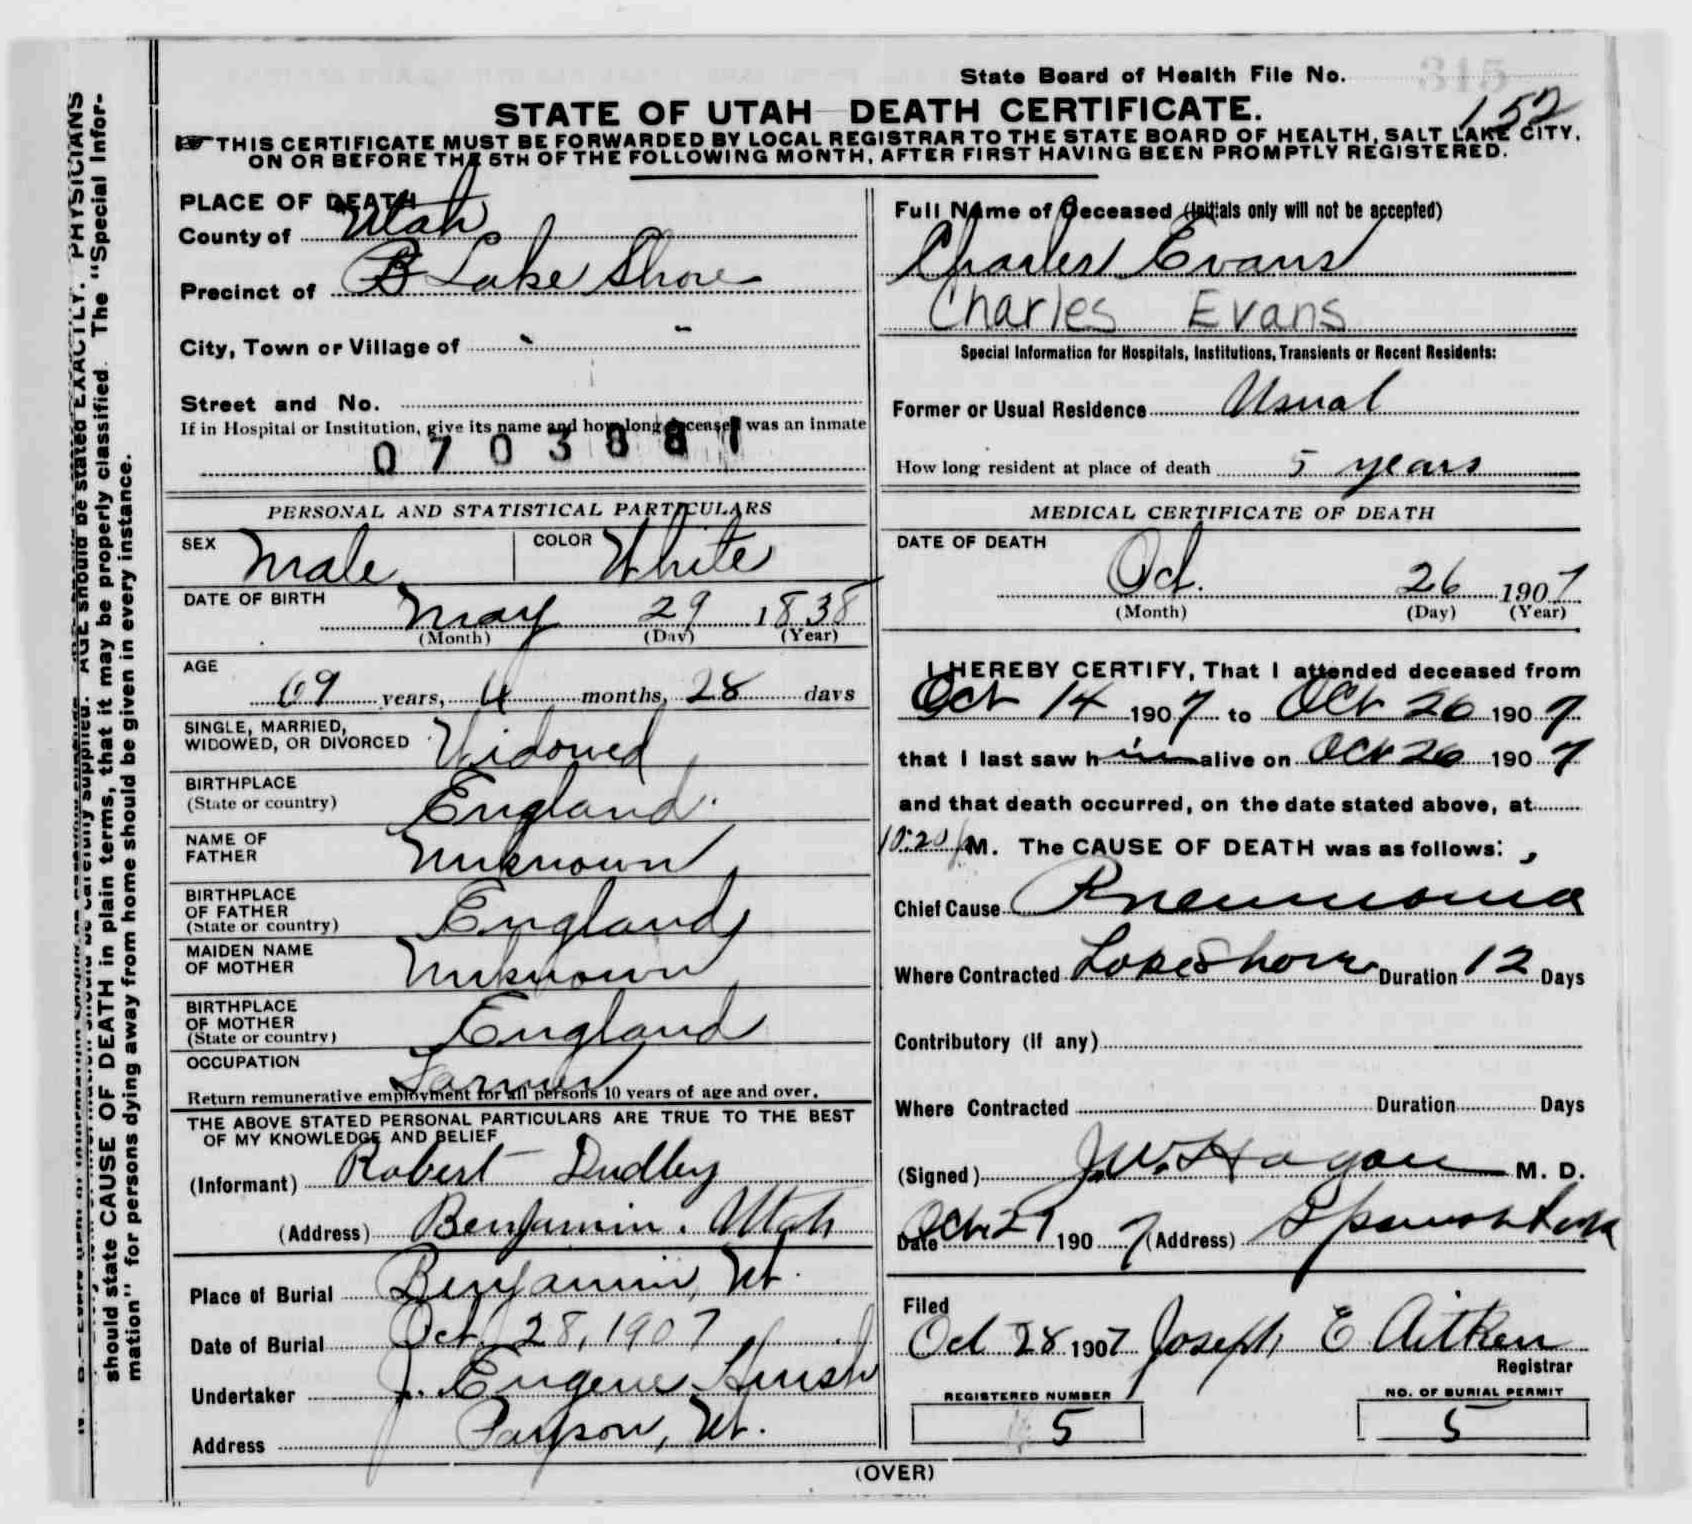 State Board of Health File No. 315
152
STATE OF UTAH DEATH CERTIFICATE.
THIS CERTIFICATE MUST BE FORWARDED BY LOCAL REGISTRAR TO THE STATE BOARD OF HEALTH, SALT LAKE CITY,
ON OR BEFORE THE 5TH OF THE FOLLOWING MONTH, AFTER FIRST HAVING BEEN PROMPTLY REGISTERED.
PLACE OF DEATH
County of Utah
Precinct of Lake Shore
City, Town or Village of - -
Street and No.
If in Hospital or Institution, give its name and how long deceased was an inmate
0703881
PERSONAL AND STATISTICAL PARTICULARS
SEX Male COLOR White
DATE OF BIRTH May 29 1838
(Month) (Day) (Year)
AGE
69 years, 4 months, 28 days
SINGLE, MARRIED,
WIDOWED, OR DIVORCED Widowed
BIRTHPLACE
(State or country) England
NAME OF
FATHER Unknown
BIRTHPLACE
OF FATHER
(State or country) England
MAIDEN NAME
OF MOTHER Unknown
BIRTHPLACE
OF MOTHER
(State or country) England
OCCUPATION Farmer
Return remunerative employment for all persons 10 years of age and over.
THE ABOVE STATED PERSONAL PARTICULARS ARE TRUE TO THE BEST
OF MY KNOWLEDGE AND BELIEF
(Informant) Robert Dudley
(Address) Benjamin. Utah
Place of Burial Benjamin, Ut.
Date of Burial Oct. 28, 1907
Undertaker J. Eugene Huish
Address Payson, Ut.
Full Name of Deceased (Initials only will not be accepted)
Charles Evans
Charles Evans
Special Information for Hospitals, Institutions, Transients or Recent Residents:
Former or Usual Residence Usual
How long resident at place of death 5 years
MEDICAL CERTIFICATE OF DEATH
DATE OF DEATH
Oct. 26 1907
(Month) (Day) (Year)
I HEREBY CERTIFY, That I attended deceased from
Oct 14 1907 to Oct 26 1907
that I last saw him alive on Oct 26 1907
and that death occurred, on the date stated above, at
10:20 M. The CAUSE OF DEATH was as follows:
Chief Cause Pneumonia
Where Contracted Lake Shore Duration 12 Days
Contributory (if any)
Where Contracted Duration Days
(Signed) J.W. Hagan M. D.
Date Oct 27 1907 (Address) Spanish Fork
Filed
Oct 28 1907 Joseph E Aitken
Registrar
REGISTERED NUMBER
5
NO. OF BURIAL PERMIT
5
(OVER)
AGE should be stated EXACTLY. PHYSICIANS
should state CAUSE OF DEATH in plain terms, that it may be properly classified. The "Special Infor-
mation" for persons dying away from home should be given in every instance.